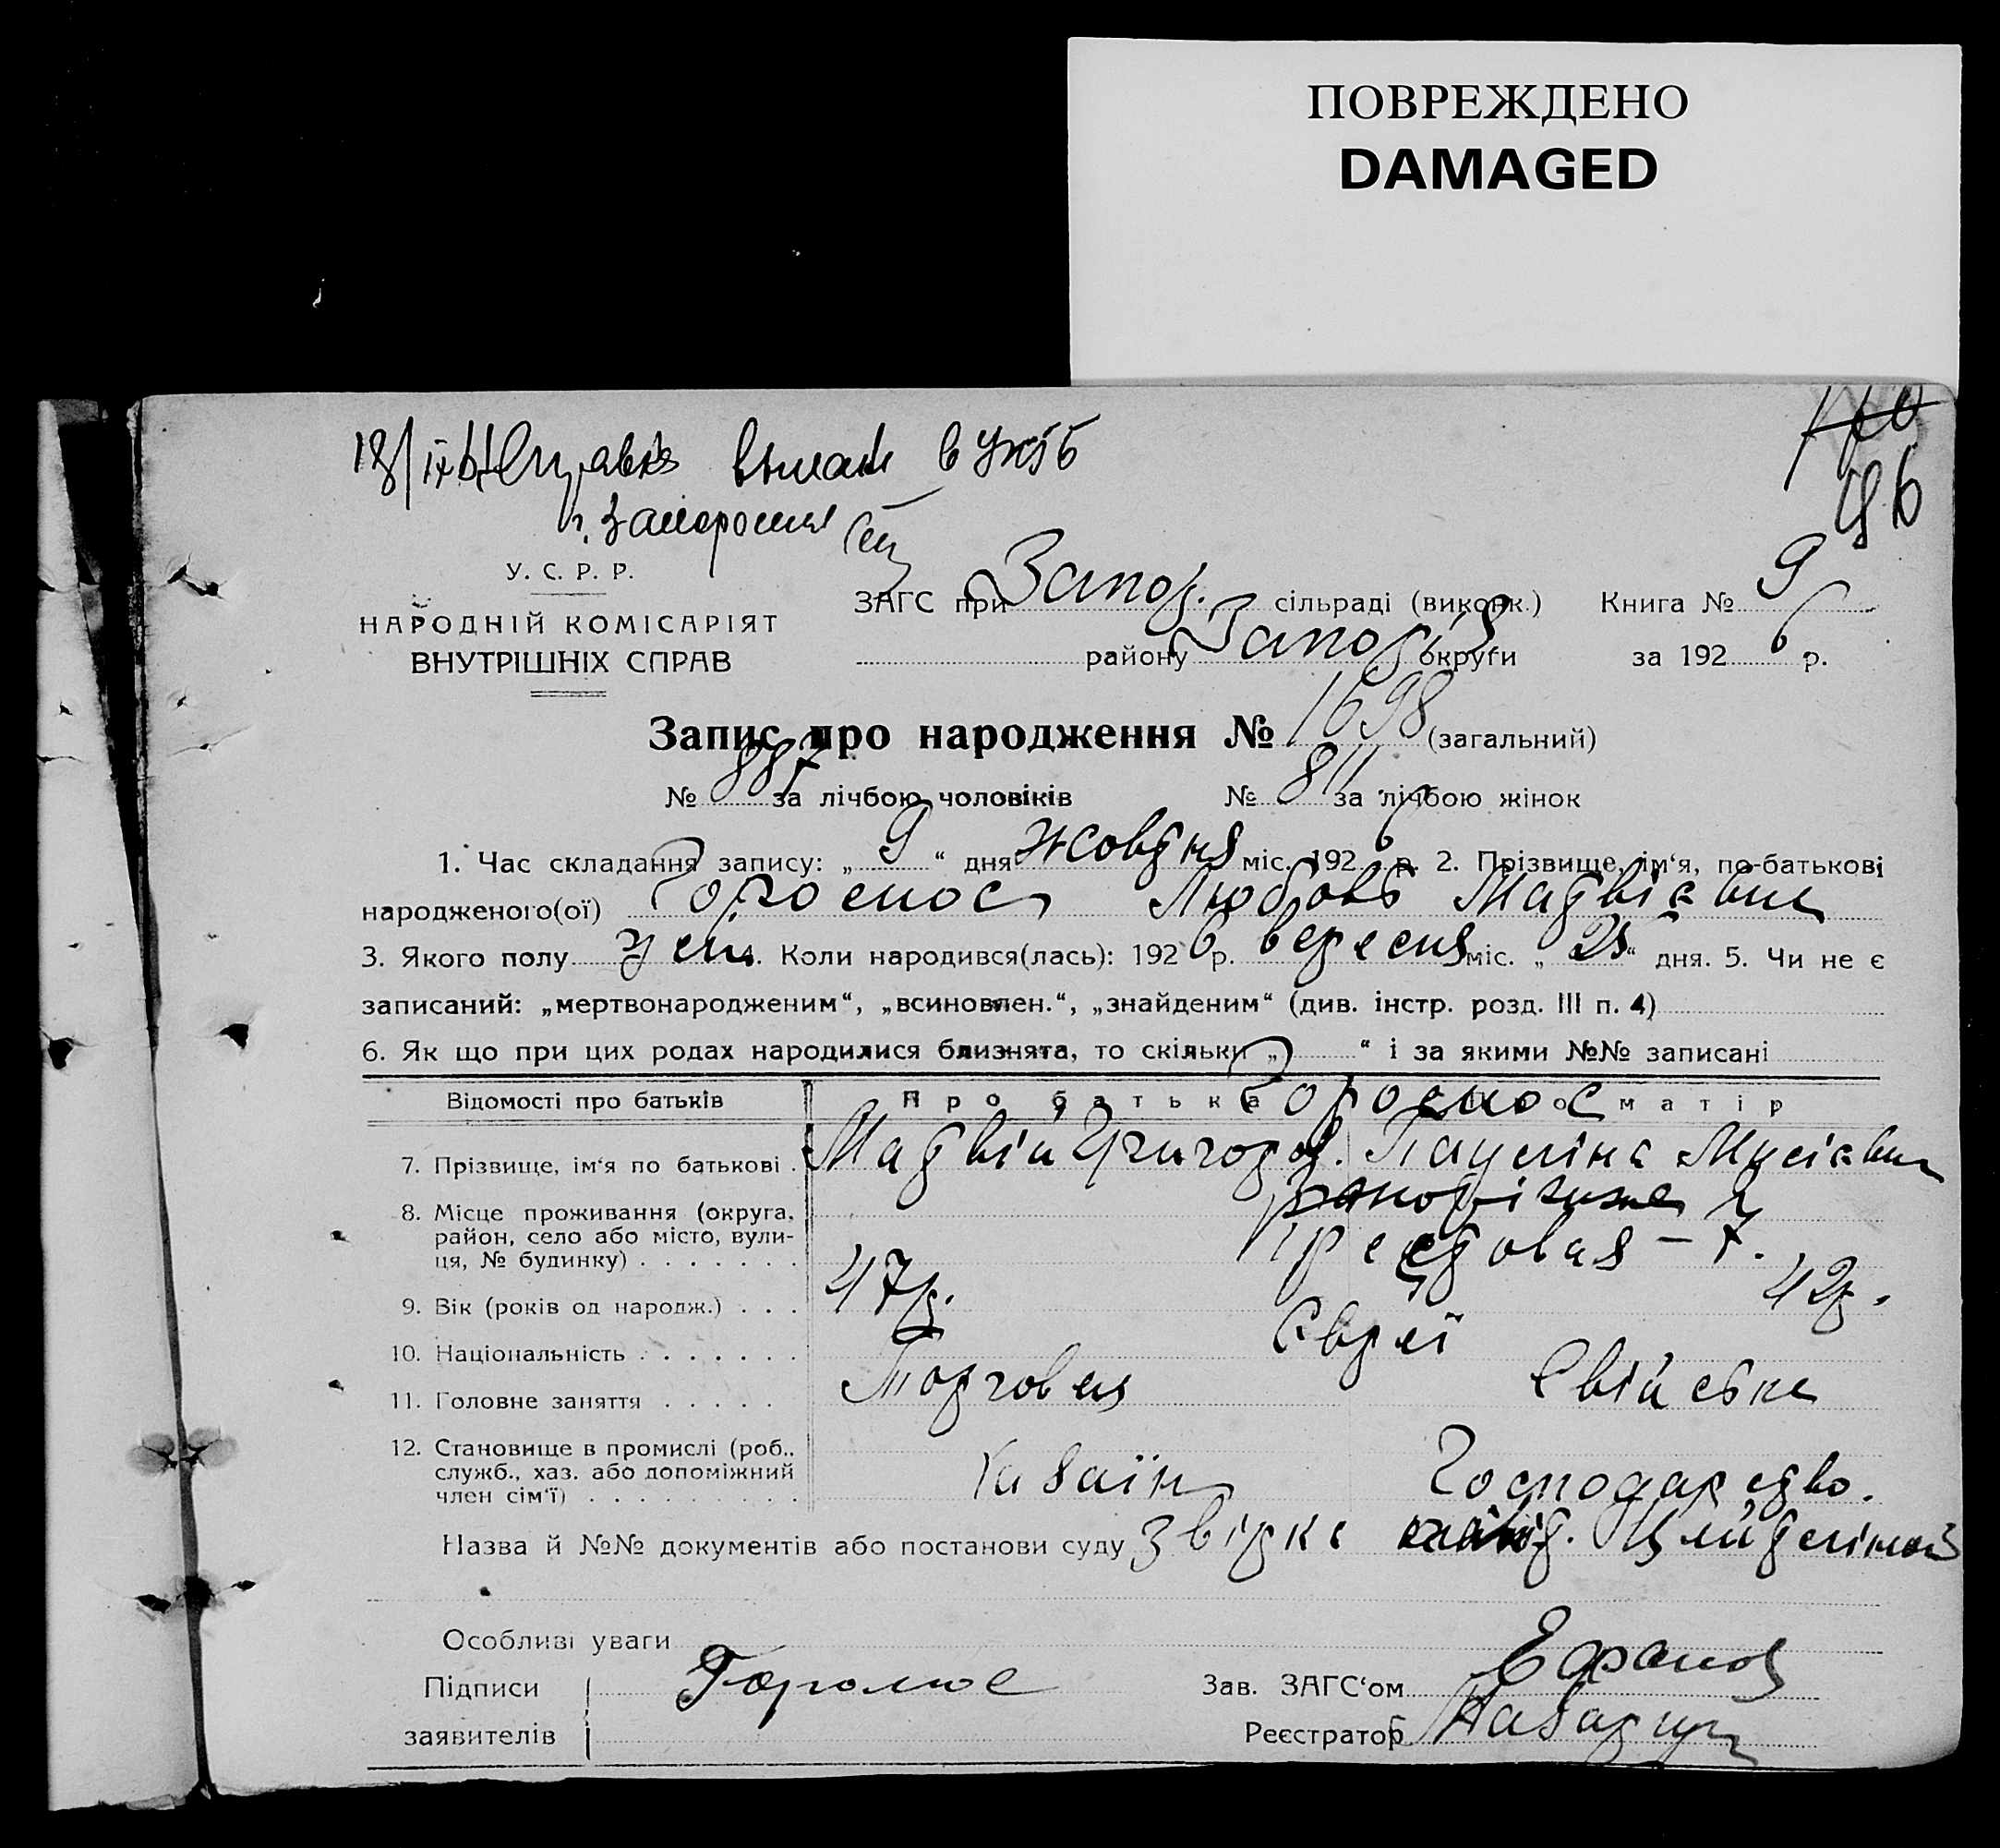 ПОВРЕЖДЕНО
DAMAGED
в
г. Запорожья
96
У. С. Р. Р.
НАРОДНІЙ КОМІСАРІЯТ
ВНУТРІШНІХ СПРАВ
ЗАГС при Запор. сільраді (виконк.) Книга № 9
району Запор округи за 1926 р.
Запис про народження № 1698 (загальний)
№ 887 за лічбою чоловіків № 811 за лічбою жінок
1. Час складання запису: „ 9 “ дня жовтня міс. 1926 р. 2. Прізвище, ім‘я, по-батькові
народженого(ої) Любовь Матвієвна
3. Якого полу жен. 4. Коли народився(лась): 1926 р. вересня міс. „ 25 “ дня. 5. Чи не є
записаний: „мертвонародженим“, „всиновлен.“, „знайденим“ (див. інстр. розд. III п. 4)
6. Як що при цих родах народилися близнята, то скільки „ “ і за якими №№ записані
Відомості про батьків Про батька Про матір
7. Прізвище, ім‘я по батькові Матвій Григоров. Пауліна Мусієвна
8. Місце проживання (округа, район, село або місто, вулиця, № будинку) 7.
9. Вік (років од народж.) 47 р. 42 р.
10. Національність Євреї
11. Головне заняття Торговля Свійське
12. Становище в промислі (роб., служб., хаз. або допоміжний член сім‘ї) Хазаїн Господарство.
Назва й №№ документів або постанови суду
Особливі уваги
Підписи
заявителів
Зав. ЗАГС‘ом
Реєстратор